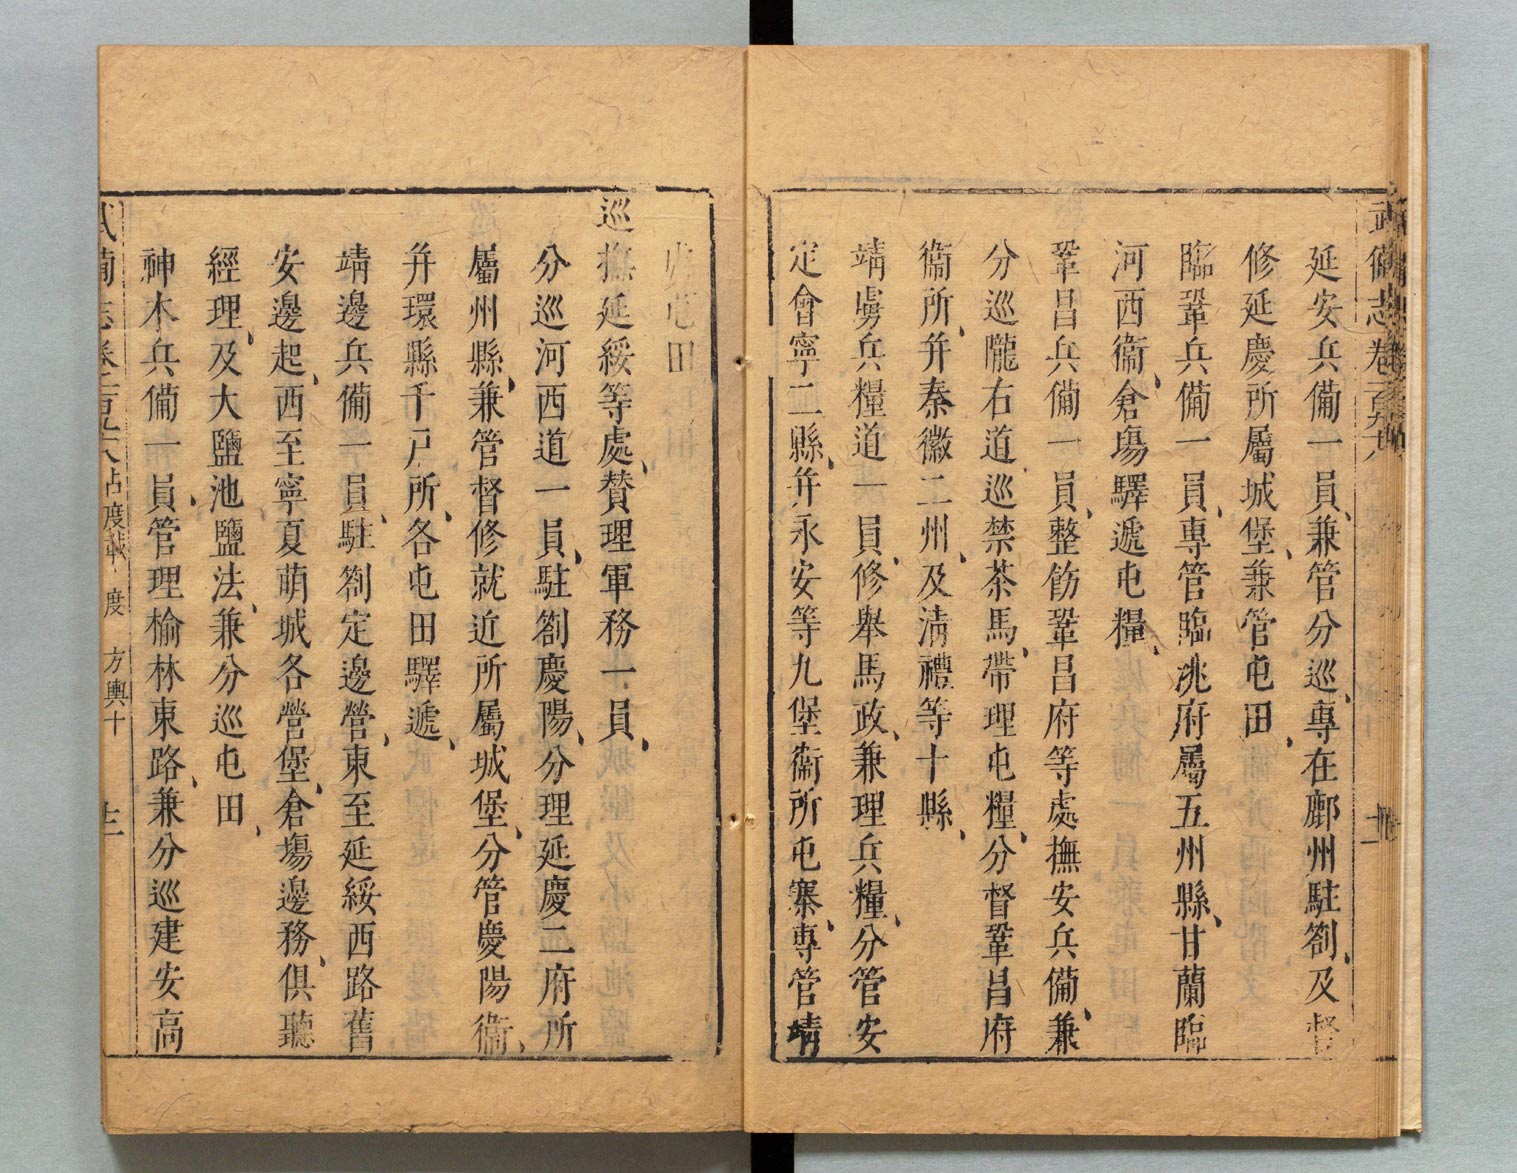 武備志卷二百六
延安兵備一員、兼管分巡、專在鄜州駐劄、及督
修延慶所屬城堡、兼管屯田、
臨鞏兵備一員、專管臨洮府屬五州縣、甘蘭臨
河西衞、倉塲驛遞屯糧、
鞏昌兵備一員、整飭鞏昌府等處撫安兵備、兼
分巡隴右道、巡禁茶馬、帶理屯糧、分督鞏昌府
衞所、并秦徽二州、及淸禮等十縣、
靖虜兵糧道一員、修舉馬政、兼理兵糧、分管安
定會寧二縣、并永安等九堡衞所屯寨、專管靖
虜屯田
巡撫延綏等處、贊理軍務一員、
分巡河西道一員、駐劄慶陽、分理延慶二府所
屬州縣、兼管督修就近所屬城堡、分管慶陽衞、
幷環縣千戸所、各屯田驛遞、
靖邊兵備一員、駐劄定邊營、東至延綏西路舊
安邊起、西至寧夏萌城各營堡、倉塲邊務、俱聽
經理、及大鹽池鹽法、兼分巡屯田、
神木兵備一員、管理榆林東路、兼分巡建安高
武備志卷二百六 占度載 度 方輿十 十二